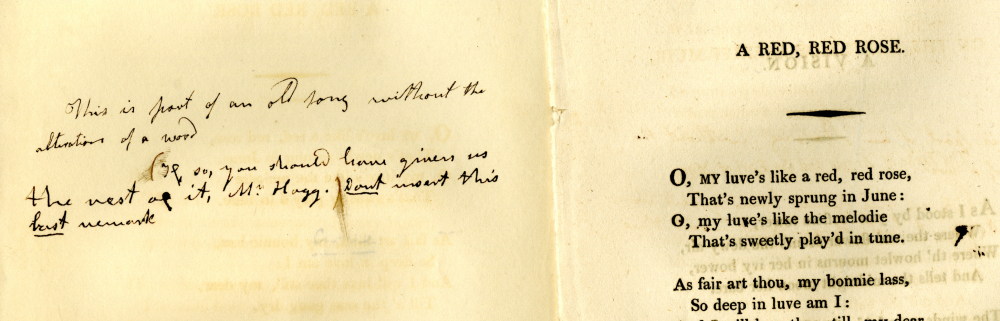 This is part of an old song without the
alteration of a word
(If so, you should have given us
the rest of it, Mr. Hogg.) Dont insert this
last remark
A RED, RED ROSE.
O, MY luve's like a red, red rose,
That's newly sprung in June:
O, my luve's like the melodie
That's sweetly play'd in tune.
As fair art thou, my bonnie lass,
So deep in luve am I: